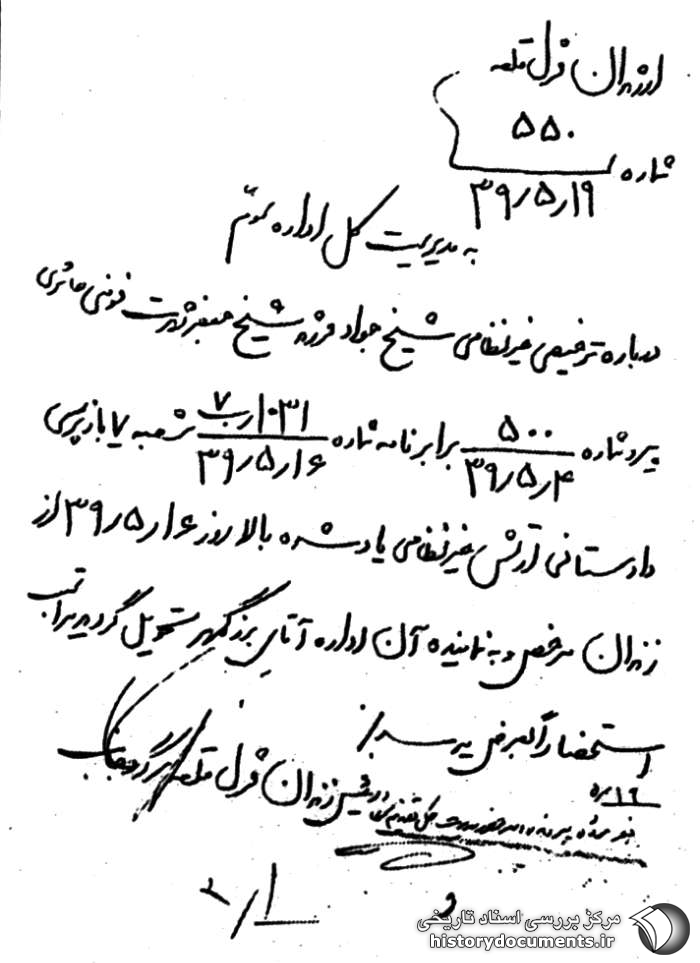 از زندان قزل قلعه
۵۵۰
شماره ۳۹/۵/۱۹
به مدیریت کل اداره سوم
درباره ترخیص غیرنظامی شیخ جواد فرزند شیخ جعفر شهرت فومنی حائری
پیرو شماره ۵۰۰ ۳۹/۵/۴ برابر نامه شماره ۱۰۳۱/ب ۷ ۳۹/۵/۱۶ شعبه ۷ بازپرسی
دادستانی ارتش غیرنظامی یاد شده بالا روز ۳۹/۵/۱۶ از
زندان مرخص و به نماینده آن اداره آقای برزگمهر تحویل گردید مراتب
استحضاراً بعرض میرسد/
رئیس زندان قزل قلعه
مرکز بررسی اسناد تاریخی
historydocuments.ir